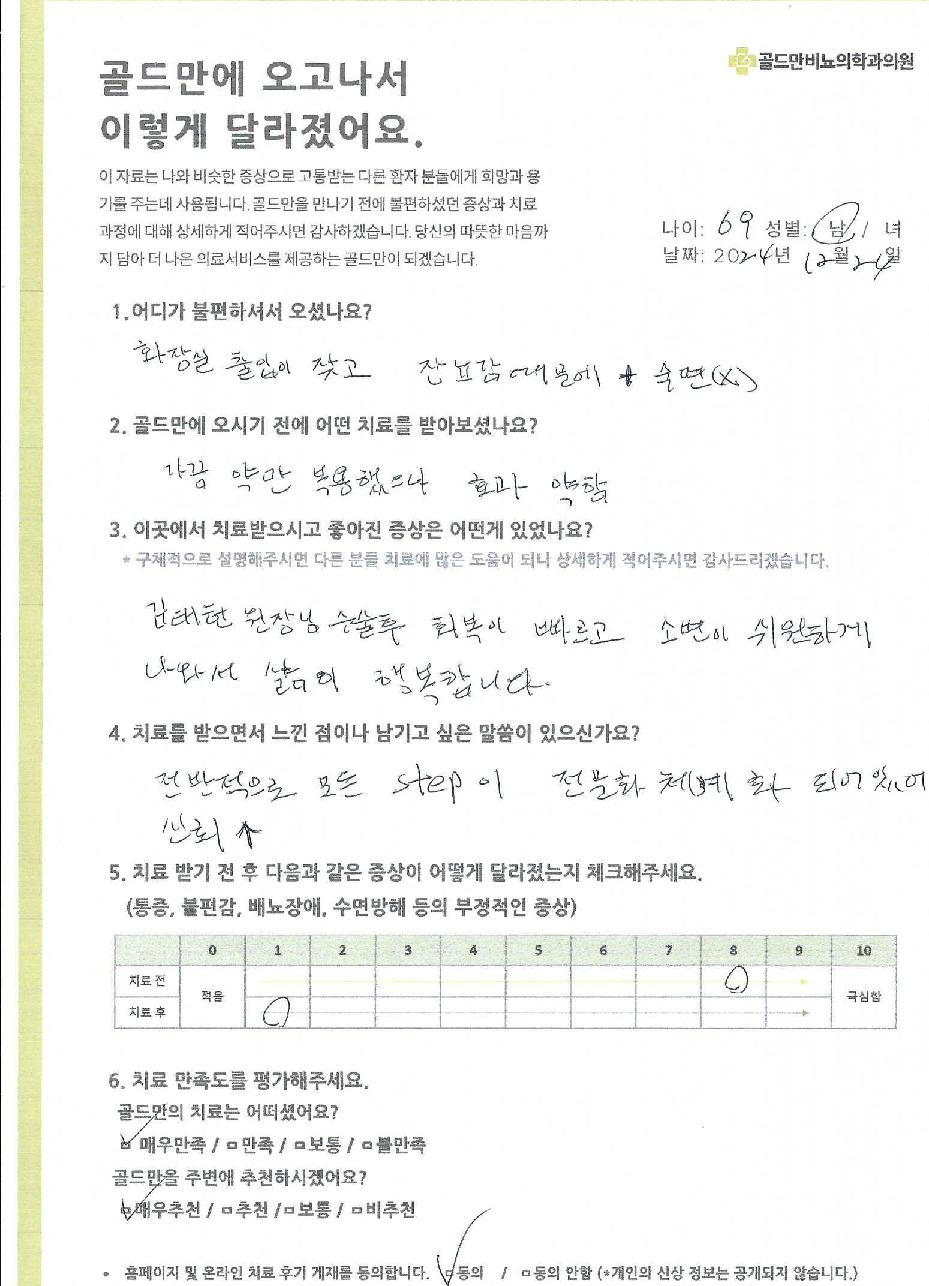 골드만비뇨의학과의원
골드만에 오고나서
이렇게 달라졌어요.
이 자료는 나와 비슷한 증상으로 고통받는 다른 환자 분들에게 희망과 용
기를 주는데 사용됩니다. 골드만을 만나기 전에 불편하셨던 증상과 치료
과정에 대해 상세하게 적어주시면 감사하겠습니다. 당신의 따뜻한 마음까
지 담아 더 나은 의료서비스를 제공하는 골드만이 되겠습니다.
나이: 69 성별: 남 / 녀
날짜: 2024년 12월 24일
1.어디가 불편하셔서 오셨나요?
화장실 출입이 잦고 잔뇨감 때문에 숙면(X)
2. 골드만에 오시기 전에 어떤 치료를 받아보셨나요?
가끔 약만 복용했으나 효과 약함
3. 이곳에서 치료받으시고 좋아진 증상은 어떤게 있었나요?
* 구체적으로 설명해주시면 다른 분들 치료에 많은 도움이 되니 상세하게 적어주시면 감사드리겠습니다.
김태헌 원장님 수술후 회복이 빠르고 소변이 쉬원하게
나와서 삶이 행복합니다.
4. 치료를 받으면서 느낀 점이나 남기고 싶은 말씀이 있으신가요?
전반적으로 모든 step이 전문화 체계화 되어 있어
신뢰 ↑
5. 치료 받기 전 후 다음과 같은 증상이 어떻게 달라졌는지 체크해주세요.
(통증, 불편감, 배뇨장애, 수면방해 등의 부정적인 증상)
0 1 2 3 4 5 6 7 8 9 10
치료 전
적음
극심함
치료 후
6. 치료 만족도를 평가해주세요.
골드만의 치료는 어떠셨어요?
☑ 매우만족 / □ 만족 / □ 보통 / □ 불만족
골드만을 주변에 추천하시겠어요?
☑매우추천 / □ 추천 /□ 보통 / □ 비추천
• 홈페이지 및 온라인 치료 후기 게재를 동의합니다. ☑동의 / □ 동의 안함 (*개인의 신상 정보는 공개되지 않습니다.)